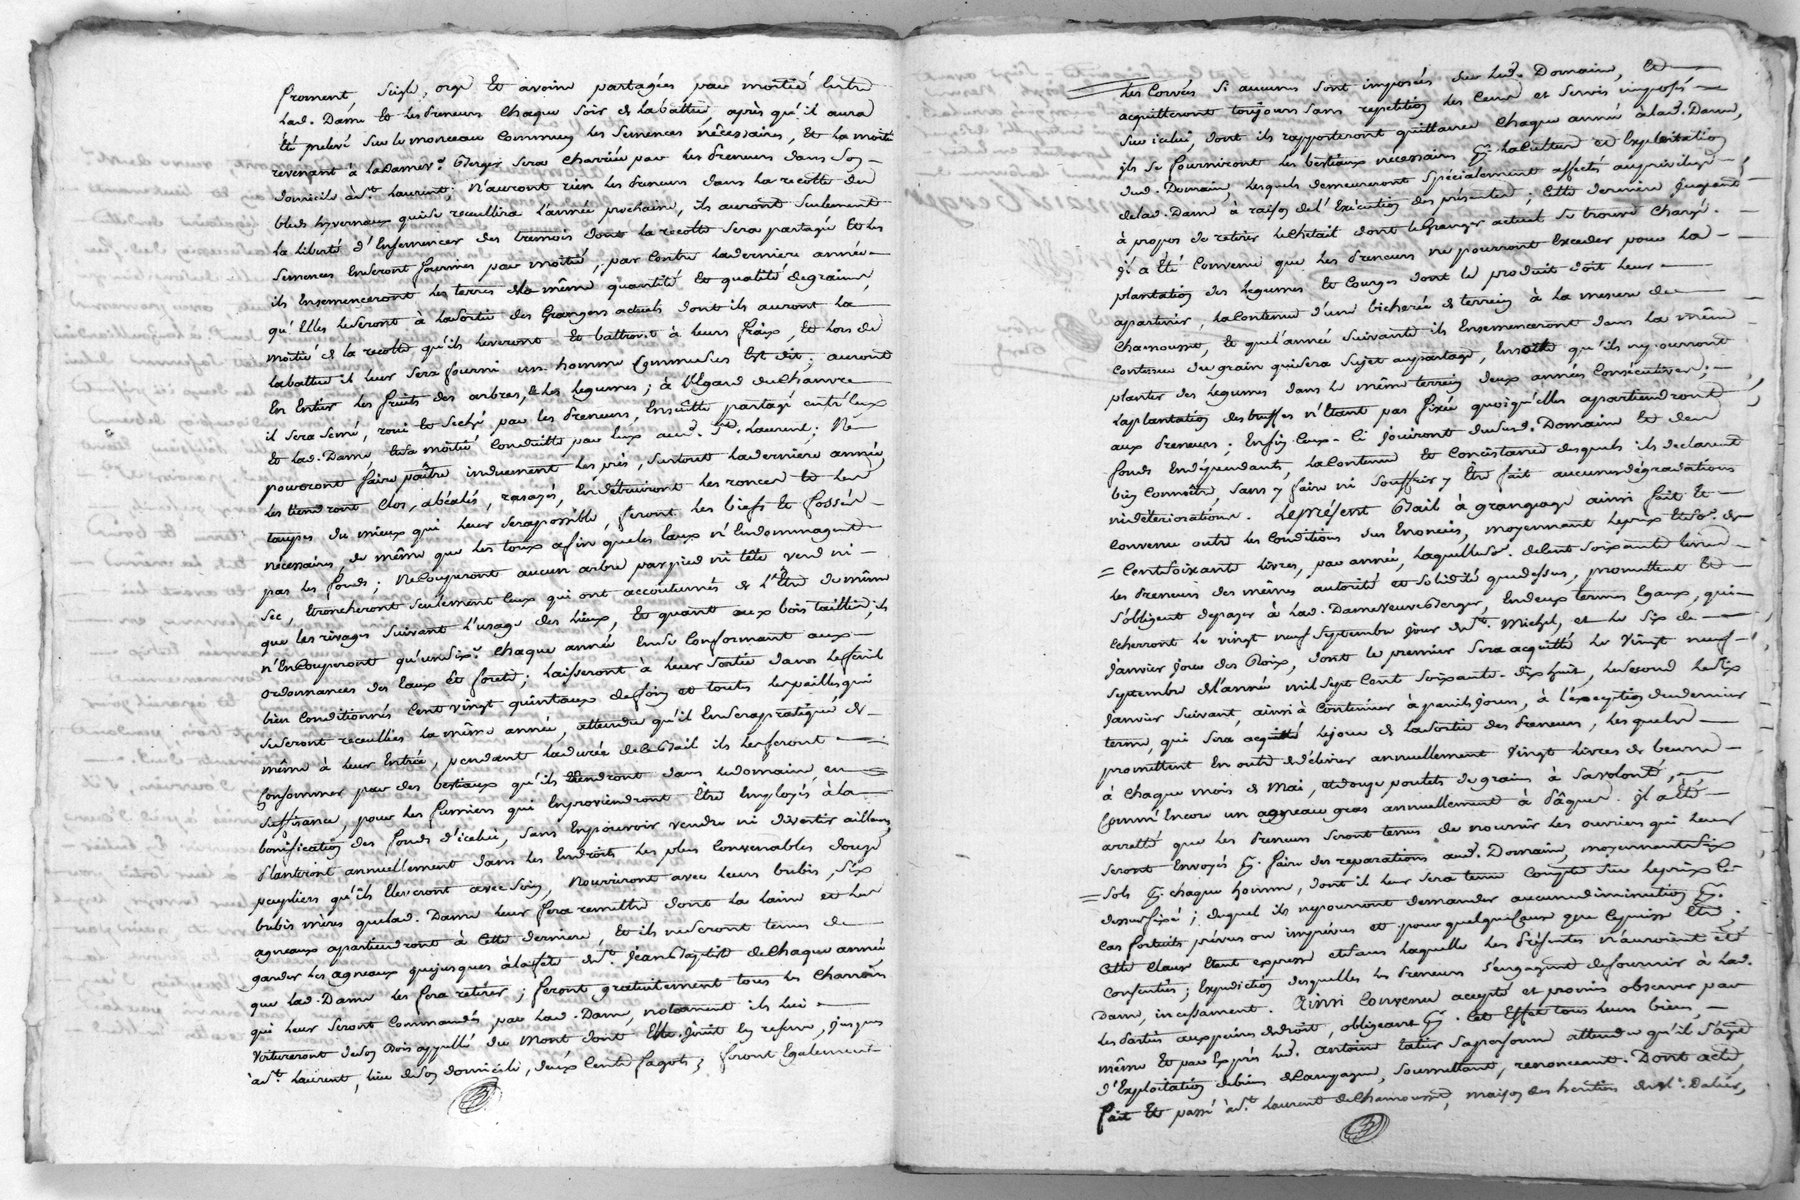 froment, seigle, orge et avoine partagées par moitié entre
lad. Dame et les preneurs chaque soir de la battue, après qu'il aura
été prelevé sur le monceau commun les semences nécessaires, et la moitié
revenant à la dame v.e Berger sera charriée par les preneurs dans son
domicile à St. Laurent; n'auront rien les preneurs dans la recolte des
bleds hyvernaux qui se recueillira l'année prochaine, ils auront seulement
la liberté d'ensemencer des tremois dont la recolte sera partagée et les
semences en seront fournies par moitié, par contre la derniere année
ils ensemenceront les terres de la même quantité et qualité de grains,
qu'elles le seront à la sortie des Grangers actuels dont ils auront la
moitié de la recolte qu'ils leveront et battront à leurs fraix, et lors de
la battue il leur sera fourni un homme comme dessus est dit; auront
en entier les fruits des arbres, et les legumes; à l'égard du chanvre
il sera semé, roui et seché par les preneurs, ensuitte partagé entr'eux
et lad. Dame et sa moitié conduitte par eux aud. St. Laurent; Ne
pourront faire paître induement les prés, surtout la derniere année,
les tiendront clos, abéalés, rasoyés, en détruiront les ronces et les
taupes du mieux qui leur sera possible, feront les biefs et fossés
necessaires, de même que les toux afin que les eaux n'endommagent
pas les fonds; ne couperont aucun arbre par pied ni tête verd ni
sec, etroncheront seulement ceux qui ont accoutumés de l'être de même
que les rivages suivant l'usage des lieux, et quant aux bois taillis, ils
n'en couperont qu'un six.e chaque année en se conformant aux
ordonnances des Eaux et forêts; laisseront à leur sortie dans le fenil
bien conditionnés cent vingt quintaux de foin et toutes les pailles qui
se seront recueillies la même année, attendu qu'il en sera pratiqué de
même à leur entrée, pendant la durée de ce Bail ils les feront
consommer par des bestiaux qu'ils tiendront dans le domaine, en
suffisance, pour les fumiers qui en proviendront être employés à la
bonification des fonds d'icelui, sans en pouvoir vendre ni divertir ailleurs,
Planteront annuellement dans les endroits les plus convenables douze
peupliers qu'ils eleveront avec soin, Nourriront avec leurs brebis, six
brebis mères que lad. Dame leur fera remettre dont la laine et les
agneaux apartiendront à cette derniere, et ils ne seront tenus de
garder les agneaux que jusques à la fête de St. Jean Baptiste de chaque année
que lad. Dame les fera retirer; feront gratuitement tous les charrois
qui leur seront commandés par lad. Dame, notament ils lui
voitureront de son Bois appellé du Mont dont elle jouit en reserve, jusques
à St. Laurent, lieu de son domicile, deux cents fagots; feront également
les Corvées si aucunes sont imposées sur led. Domaine, et
acquitteront toujours sans repetition les Cens et Servis imposés
sur icelui, dont ils rapporteront quittance chaque année à lad. Dame,
ils se fourniront les bestiaux necessaires pr. la culture et exploitation
dud. Domaine, lesquels demeureront specialement affectés au privilege
de lad. Dame à raison de l'Exécution des présentes; cette derniere jugeant
à propos de retirer le chetail dont le Granger actuel se trouve chargé.
Il a été convenu que les preneurs ne pourront exceder pour la
plantation des legumes et courges dont le produit doit leur
apartenir, la contenue d'une bicherée de terrein à la mesure de
Chamousset, et que l'année suivante ils ensemenceront dans la même
contenue du grain qui sera sujet au partage, ensorte qu'ils n'y pourront
planter des legumes dans le même terrein deux années consécutives;
la plantation des truffes n'étant pas fixée quoiqu'elles apartiendront
aux preneurs; enfin ceux-ci jouiront dud. Domaine et de
fonds en dépendants, la contenue et consistance desquels ils declarent
bien connoître, sans y faire ni souffrir y être fait aucunes dégradations
ni déteriorations. Le présent Bail à grangeage ainsi fait et
convenu outre les conditions sus énoncées, moyennant le prix et so.e de
= Cent soixante livres, par année, laquelle so.e de cent soixante livres
les preneurs des mêmes autorité et solidité que dessus, promettent et
s'obligent de payer à lad. Dame Veuve Berger, en deux termes égaux, qui
echerront le vingt neuf Septembre jour de St. Michel, et le six de
Janvier jour des Roix, dont le premier sera acquitté le Vingt neuf
Septembre de l'année mil sept cent soixante-dix huit, le second le six
Janvier suivant, ainsi à continuer à pareils jours, à l'exception du dernier
terme, qui sera acquitté le jour de la sortie des preneurs, lesquels
promettent en outre de délivrer annuellement Vingt livres de beurre
à chaque mois de Mai, et douze poulets de grains à sa volonté,
comme encore un agneau gras annuellement à Pâques. Il a été
arretté que les preneurs seront tenus de nourrir les ouvriers qui leur
seront envoyés pr. faire des reparations aud. Domaine, moyennant six
= sols pr. chaque homme, dont il leur sera tenu compte sur le prix ci
dessus fixé; duquel ils ne pourront demander aucune diminution pr.
cas fortuits prévus ou imprévus et pour quelque cause que ce puisse être;
cette clause etant expresse et sans laquelle les Présentes n'auroient été
consenties; Expedition desquelles les preneurs s'engagent de fournir à lad.
Dame, incessament. Ainsi convenu accepté et promis observer par
les Parties aux peines de droit, obligeant pr. cet effet tous leurs biens,
même et par exprès led. Antoine tatier sa personne attendu qu'il s'agit
d'Exploitation de biens de Campagne, soumettant, renonceant. Dont acte,
fait et passé à St. Laurent de Chamousset, maison des heritiers de M.e Dalier,